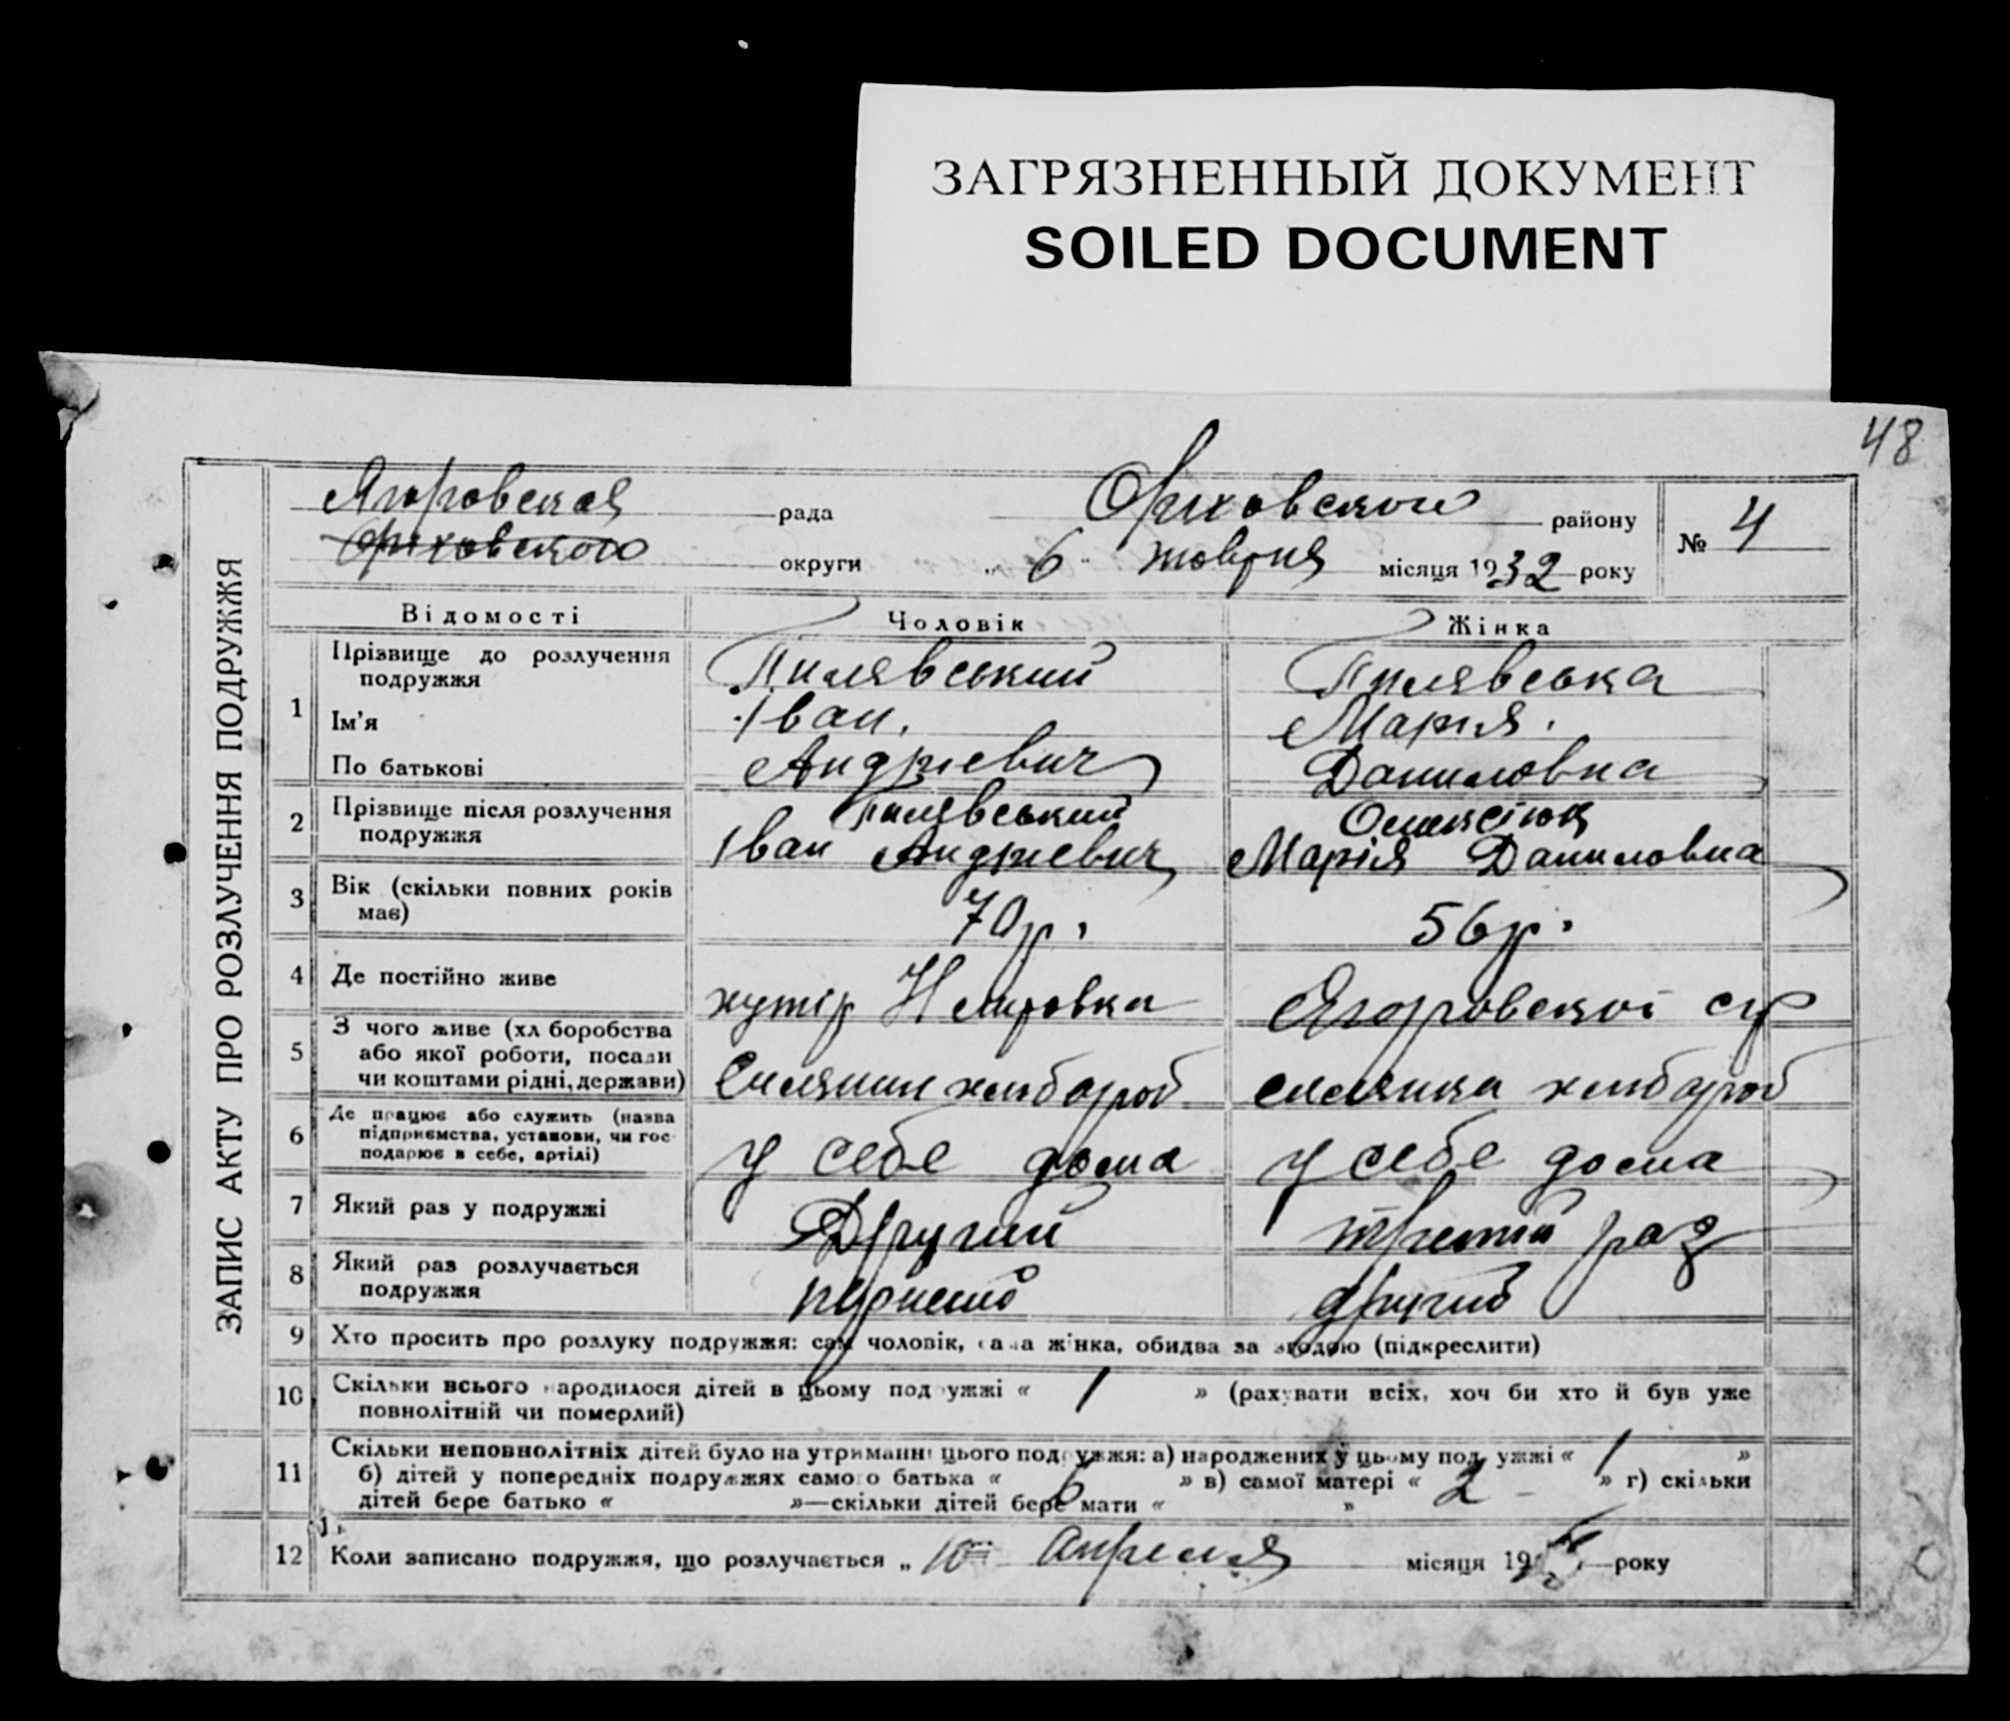 ЗАГРЯЗНЕННЫЙ ДОКУМЕНТ
SOILED DOCUMENT
48
ЗАПИС АКТУ ПРО РОЗЛУЧЕННЯ ПОДРУЖЖЯ
Ягоровская рада Оріховского району № 4
Оріховского округи 6 жовтня місяця 1932 року
Відомості Чоловік Жінка
1 Прізвище до розлучення подружжя Пилявський Пилявська
Ім'я Іван. Марія.
По батькові Андрієвич Даниловна
2 Прізвище після розлучення Пилявський
подружжя Іван Андрієвич Марія Даниловна
3 Вік (скільки повних років має) 70р. 56р.
4 Де постійно живе хутір Ягоровскої ср
5 З чого живе (хл боробства
або якої роботи, посади
чи коштами рідні, держави) Силянин хлибороб силянка хлибороб
6 Де працює або служить (назва
підприємства, установи, чи гос-
подарює в себе, артілі) у себе дома у себе дома
7 Який раз у подружжі Другий третій раз
8 Який раз розлучається
подружжя другий
9 Хто просить про розлуку подружжя: сам чоловік, сама жінка, обидва за згодою (підкреслити)
10 Скільки всього народилося дітей в цьому подружжі « 1 » (рахувати всіх, хоч би хто й був уже
повнолітній чи померлий)
11 Скільки неповнолітніх дітей було на утриманні цього подружжя: а) народжених у цьому подружжі « 1 »
б) дітей у попередніх подружжях самого батька « 6 » в) самої матері « 2 - » г) скільки
дітей бере батько « »—скільки дітей бере мати « »
12 Коли записано подружжя, що розлучається „ 10 апреля місяця 19 року